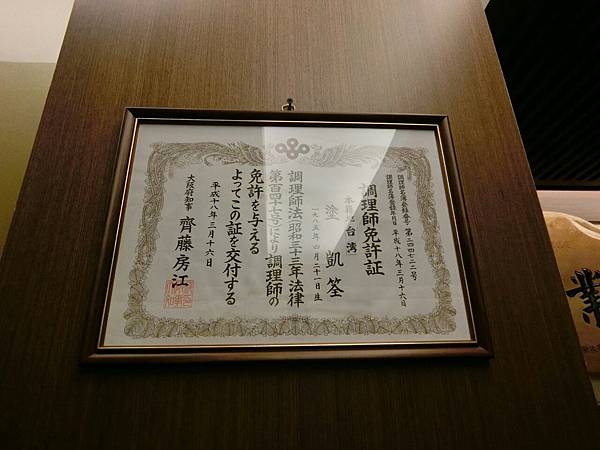 調理師名簿登録番号 第二四四七二二号
調理師名簿登録年月日 平成十八年三月十六日
調理師免許証
本籍地 台湾
塗 凱筌
一九八五年四月二十一日生
調理師法(昭和三十三年法律
第百四十七号)により調理師の
免許を与える
よってこの証を交付する
平成十八年三月十六日
大阪府知事 齊藤房江
業